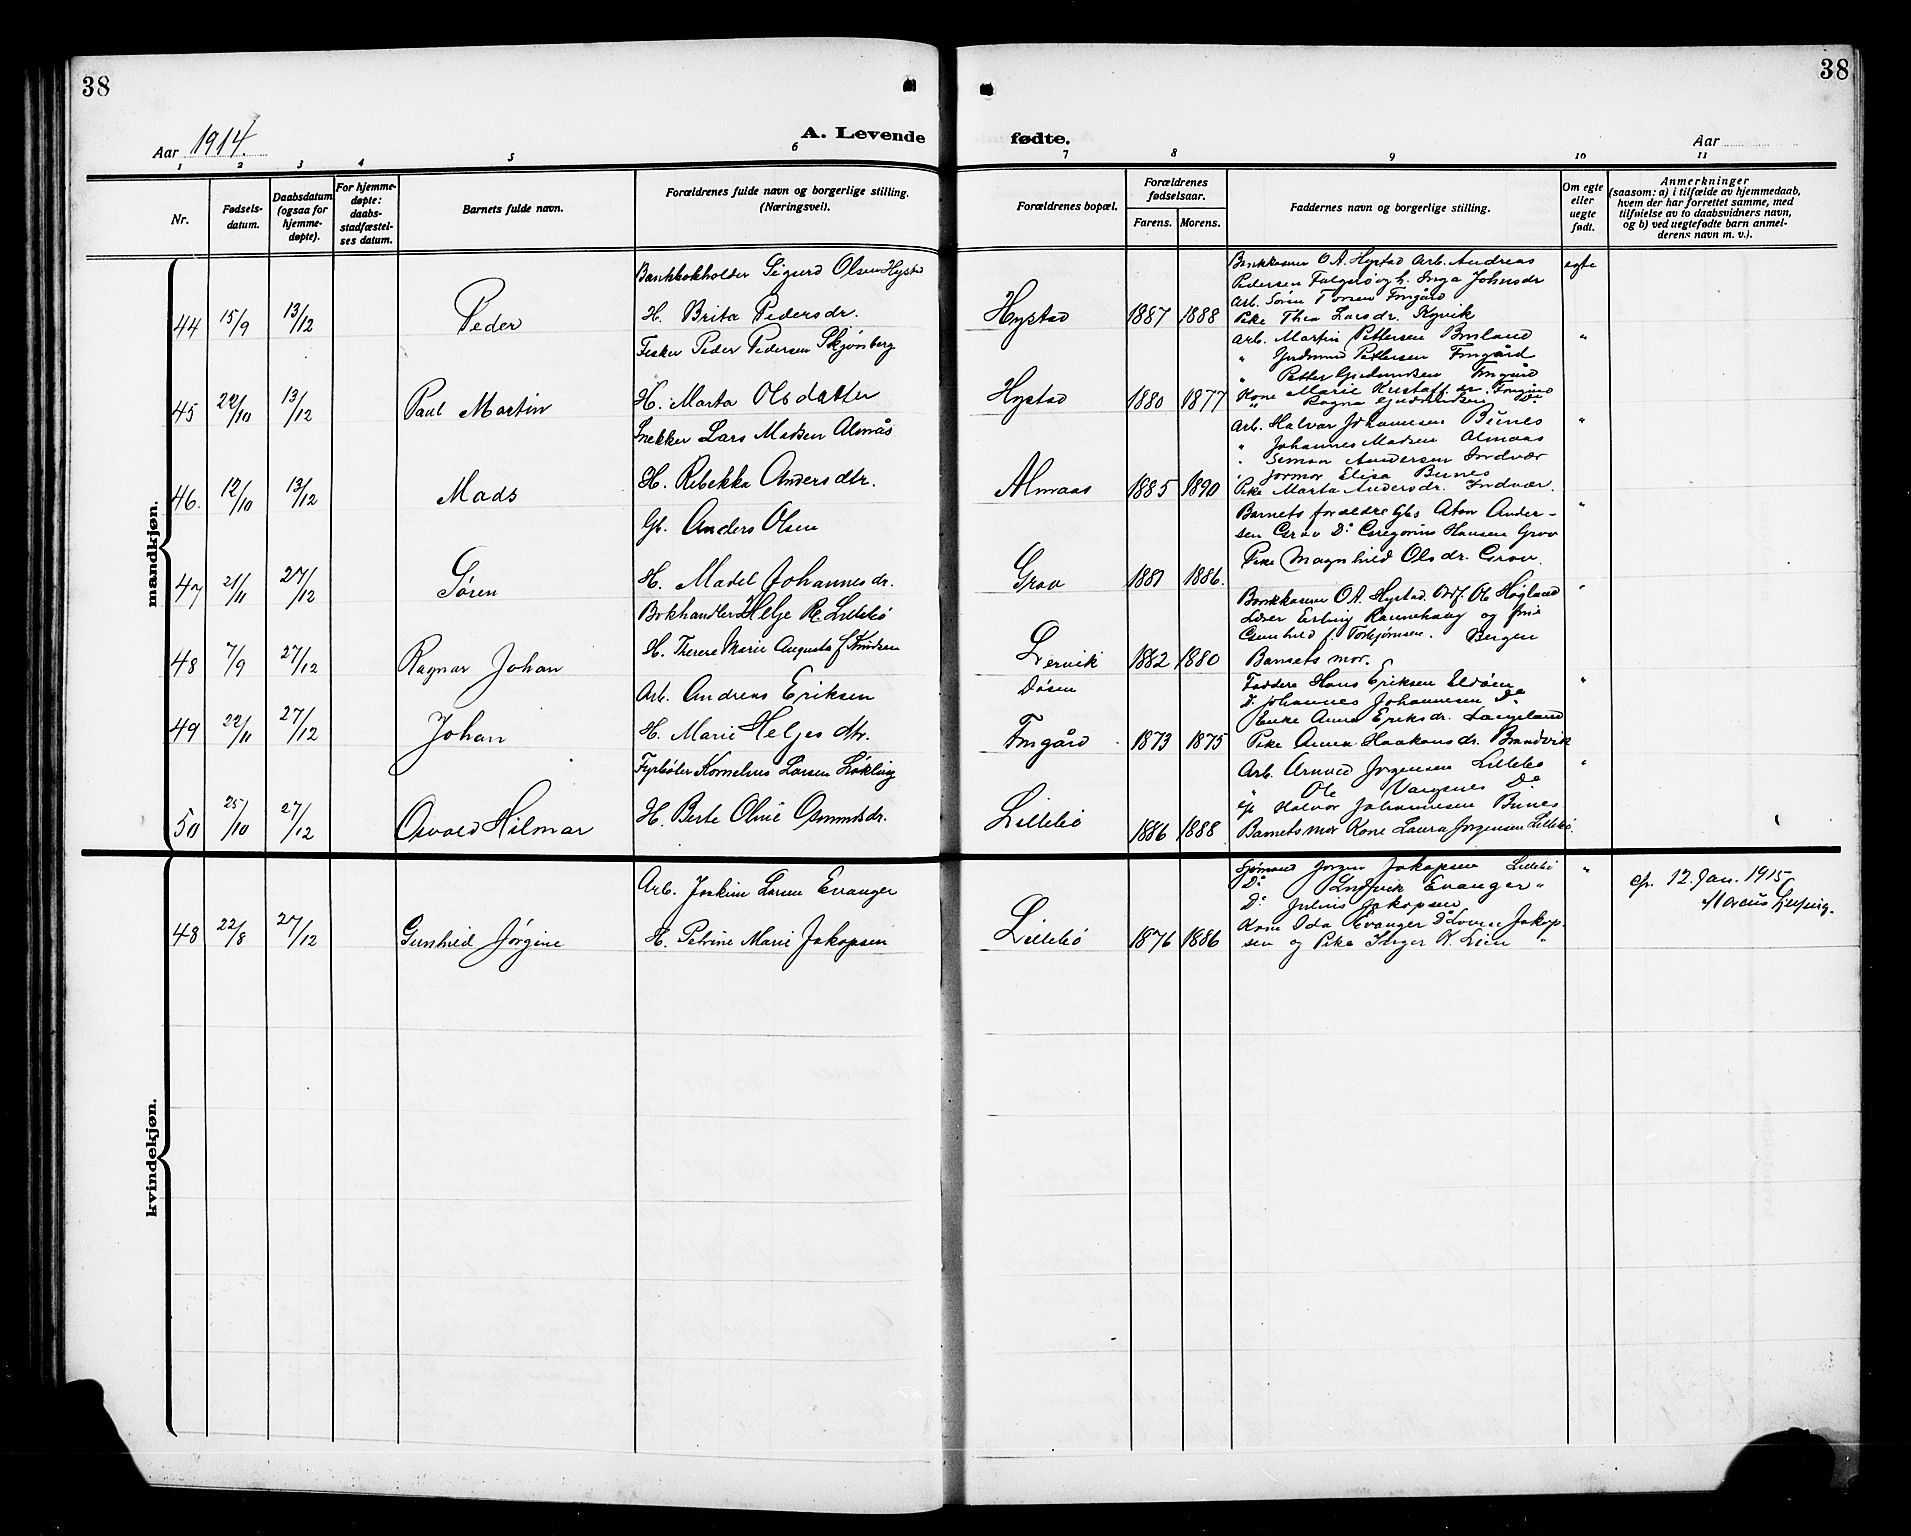 38
38
Aar 1914.
A. Levende
fødte.
Aar
1 2 3 4 5 6 7 8 9 10 11
Nr.
Fødsels-
datum.
Daabsdatum
(ogsaa for
hjemme-
døpte).
For hjemme-
døpte:
daabs-
stadfæstel-
ses datum.
Barnets fulde navn.
Forældrenes fulde navn og borgerlige stilling.
(Næringsvei).
Forældrenes bopæl.
Forældrenes
fødselsaar.
Farens. Morens.
Faddernes navn og borgerlige stilling.
Om egte
eller
uegte
født.
Anmerkninger
(saasom: a) i tilfælde av hjemmedaab,
hvem der har forrettet samme, med
tilføielse av to daabsvidners navn,
og b) ved uegtefødte barn anmel-
derens navn m. v.).
mandkjøn.
Bankbokholder Sigurd Olsen Hystad
44 15/9 13/12 Peder H. Brita Pedersdr. Hystad 1887 1888
Bankkaserer O A. Hystad Arb. Andreas
Pedersen h. Inga Johnsdr
Arb. Sören
Pike Thea Larsdr. Kyvik
egte
Fisker Peder Pedersen Skjønberg
45 22/10 13/12 Paul Martin H. Marta Olsdatter Hystad 1880 1877
Arb. Martin Pettersen
" Gudmund Pettersen
" Petter Gudmundsen
Kone Marie
" Ragna Gudmundsen Do
"
Snekker Lars Madsen Almås
46. 12/10 13/12 Mads H. Rebekka Andersdtr. Almaas 1885 1890
Arb. Halvar Johannesen Bünes
" Johannes Madsen Almaas
" Simon Andersen Indvær
Jormor Elisa Bünes
Pike Marta Andersdr. Indvær.
"
Gb. Anders Olsen
47 21/11 27/12 Søren H. Madel Johannesdr. Grov 1886.
Barnets forældre Gbs Aton Ander-
sen Grov Do Gregorius Hansen Grov
Pike Magnhild Olsdr. Grov.
"
Bokhandler Helje R. Lillebö
48 7/9 27/12 Ragnar Johan H. Therese Marie Augusta f. Knudsen Lervik 1882 1880
Bankkaserer O A. Hystad. Ole Högland
Lærer Erling Ravnehaug og frue
Gunhild f. Torbjörnsen. Bergen
Barnets mor.
"
Arb. Andreas Eriksen
Døsen
49 22/11 27/12 Johan H. Marie Heljesdtr. 1873 1875
Faddere Hans Eriksen Eldöen
Do Johannes Johannesen Do
Enke Anna Eriksdr. Langeland
Pike Anna Haakonsdr. Brandvik
"
Fyrbøter Kornelius Larsen Løkling
50 25/10 27/12 Osvald Hilmar H. Berte Oline Osmundsdr. Lillebö 1886 1888
Arb. Arnved Jørgensen Lillebö
" Ole Vangsnes Do
Halvor Johannesen Bünes
Barnets mor Kone Laura Jørgensen Lillebö.
"
kvindekjøn.
Arb. Joakim Larsen Evanger
48 22/8 27/12 Gunhild Jørgine H. Petrine Marie Jakopsen Lillebö 1876 1886
Sjømand Jørgen Jakopsen Lillebö
Do Ludvik Evanger "
Do Julius Jakopsen
Kone Oda Evanger Do Lovise Jakop-
sen og Pike Inger K. Lien "
"
cf. 12. Jan. 1915